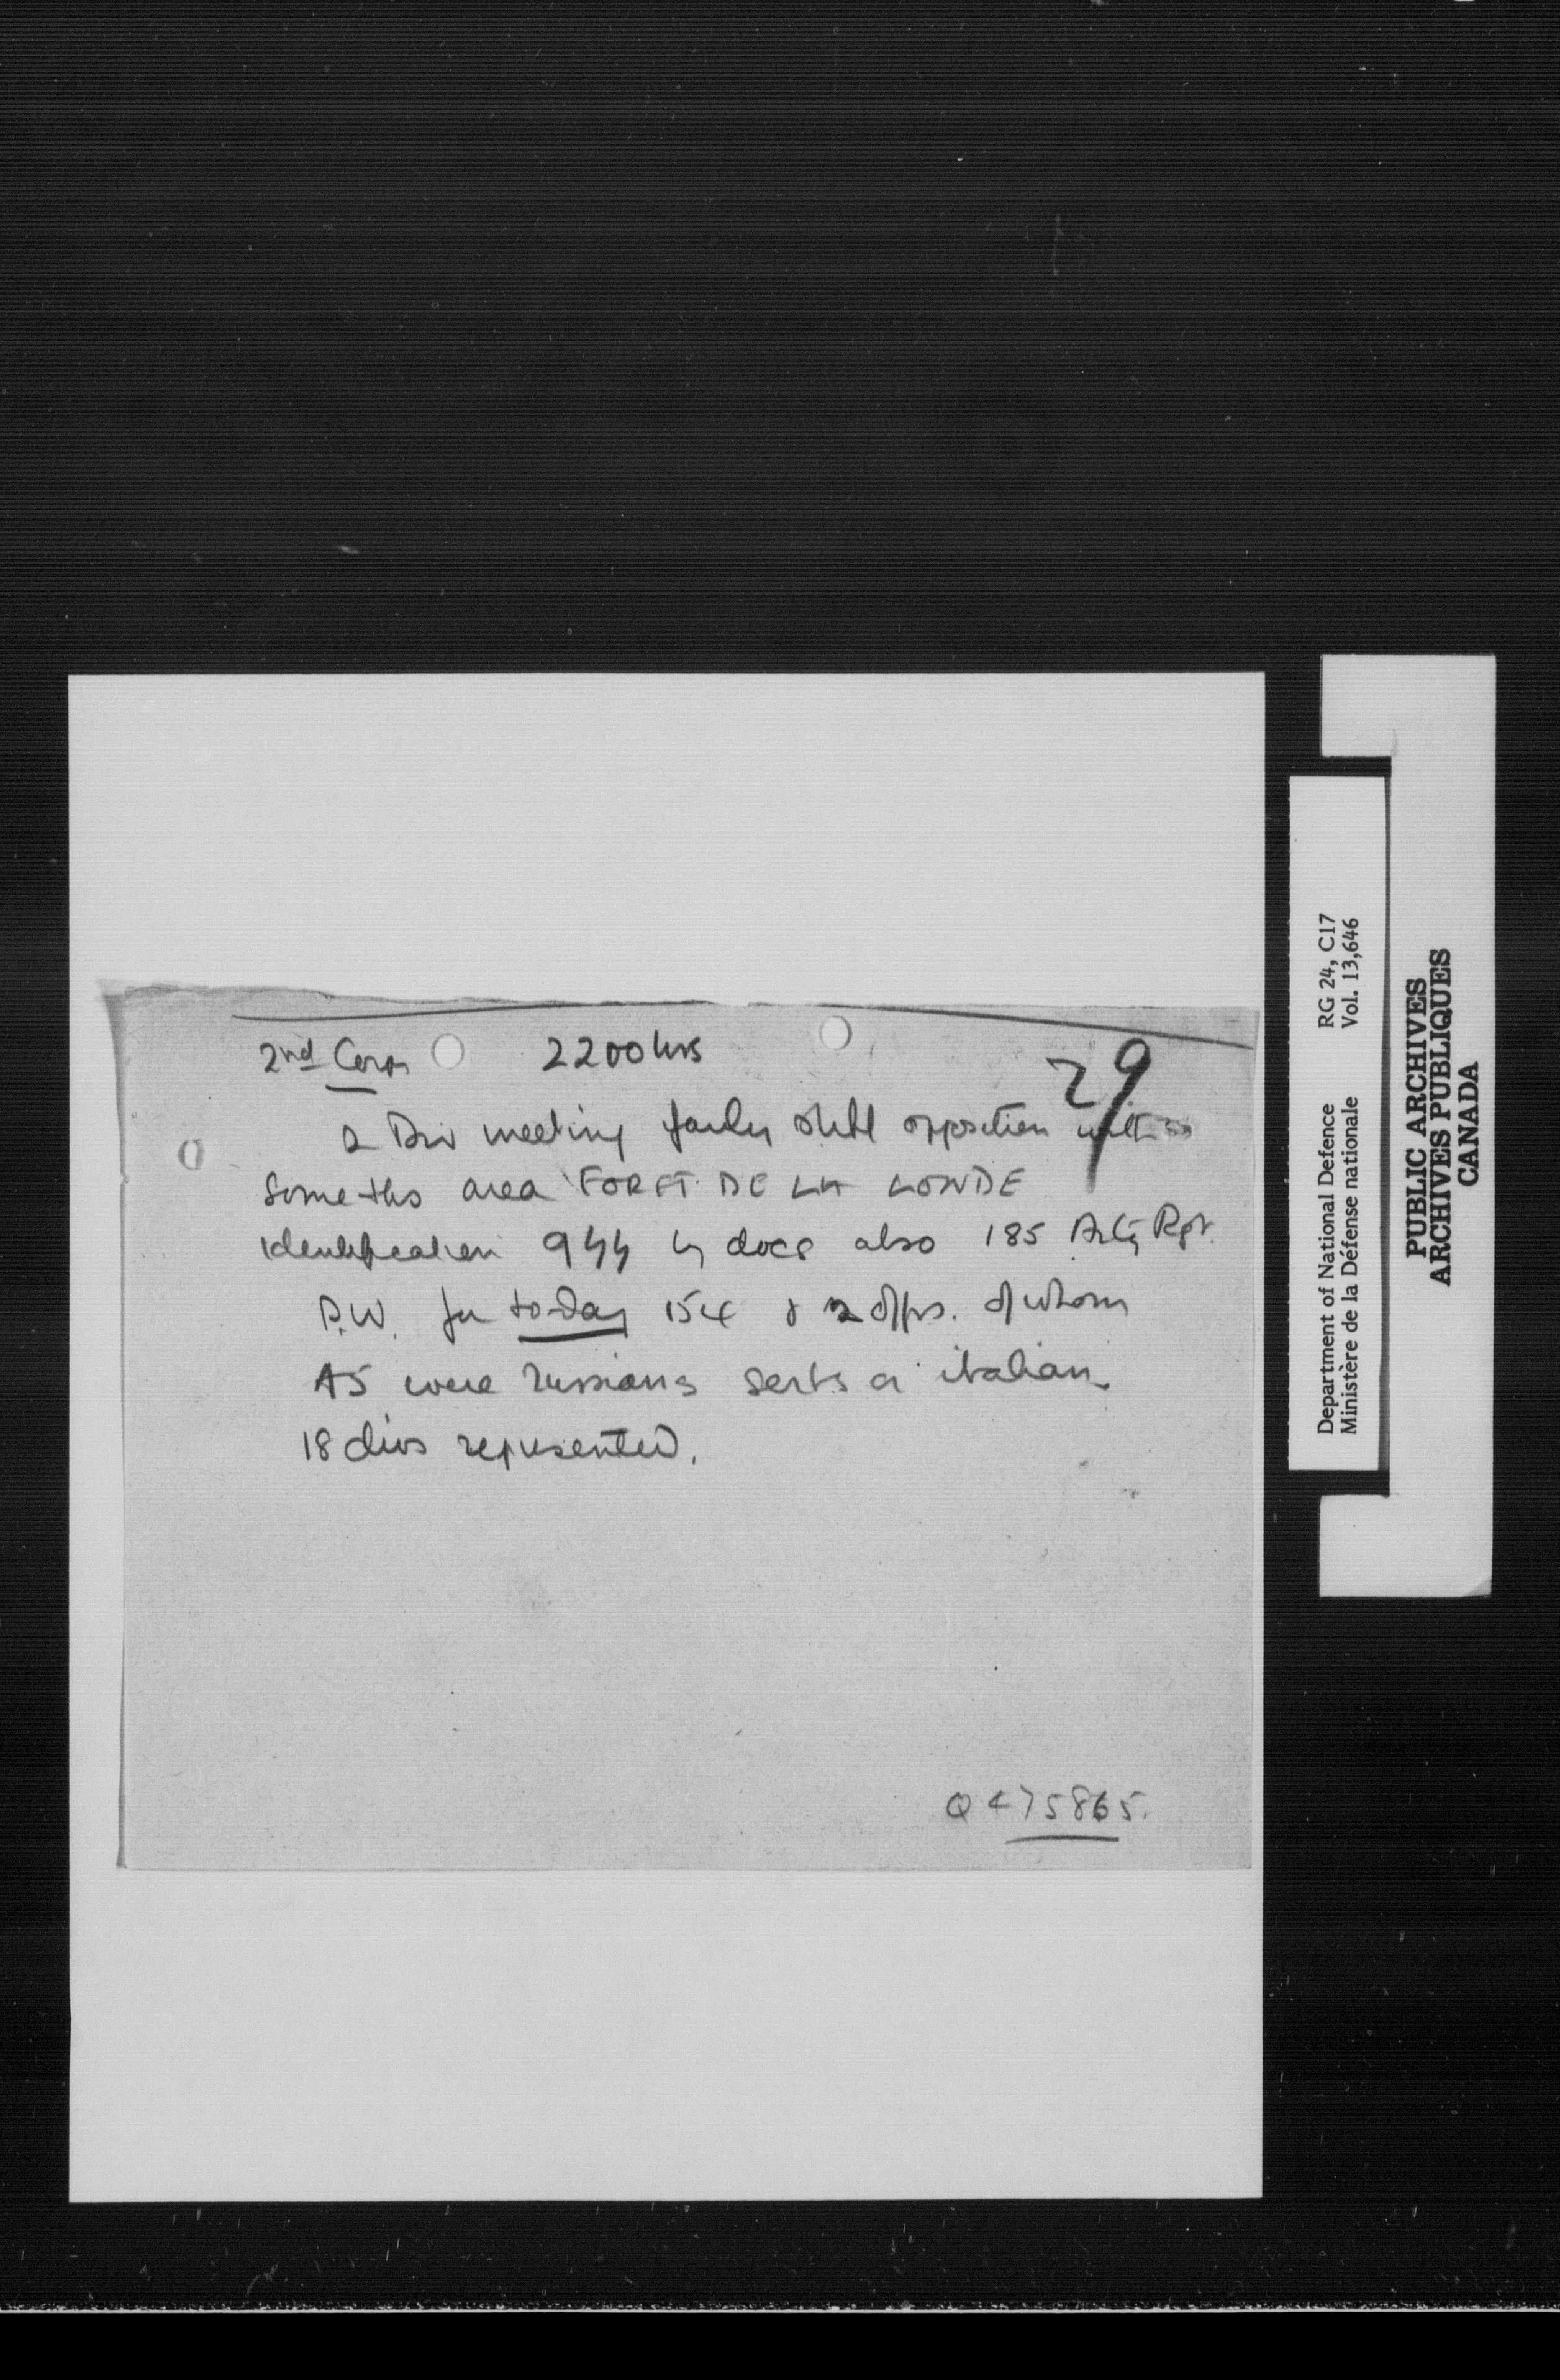 2nd Corps 2200 hrs
29
2 Div meeting fairly stiff opposition with
some tks area FORET DE LA LONDE
identification 944 by docs also 185 Arty Rgt.
P.W. for to-day 154 & 2 offrs. of whom
45 were russians serbs or italian
18 divs represented.
Q 475865.
Department of National Defence RG 24, C17
Ministère de la Défense nationale Vol. 13,646
PUBLIC ARCHIVES
ARCHIVES PUBLIQUES
CANADA